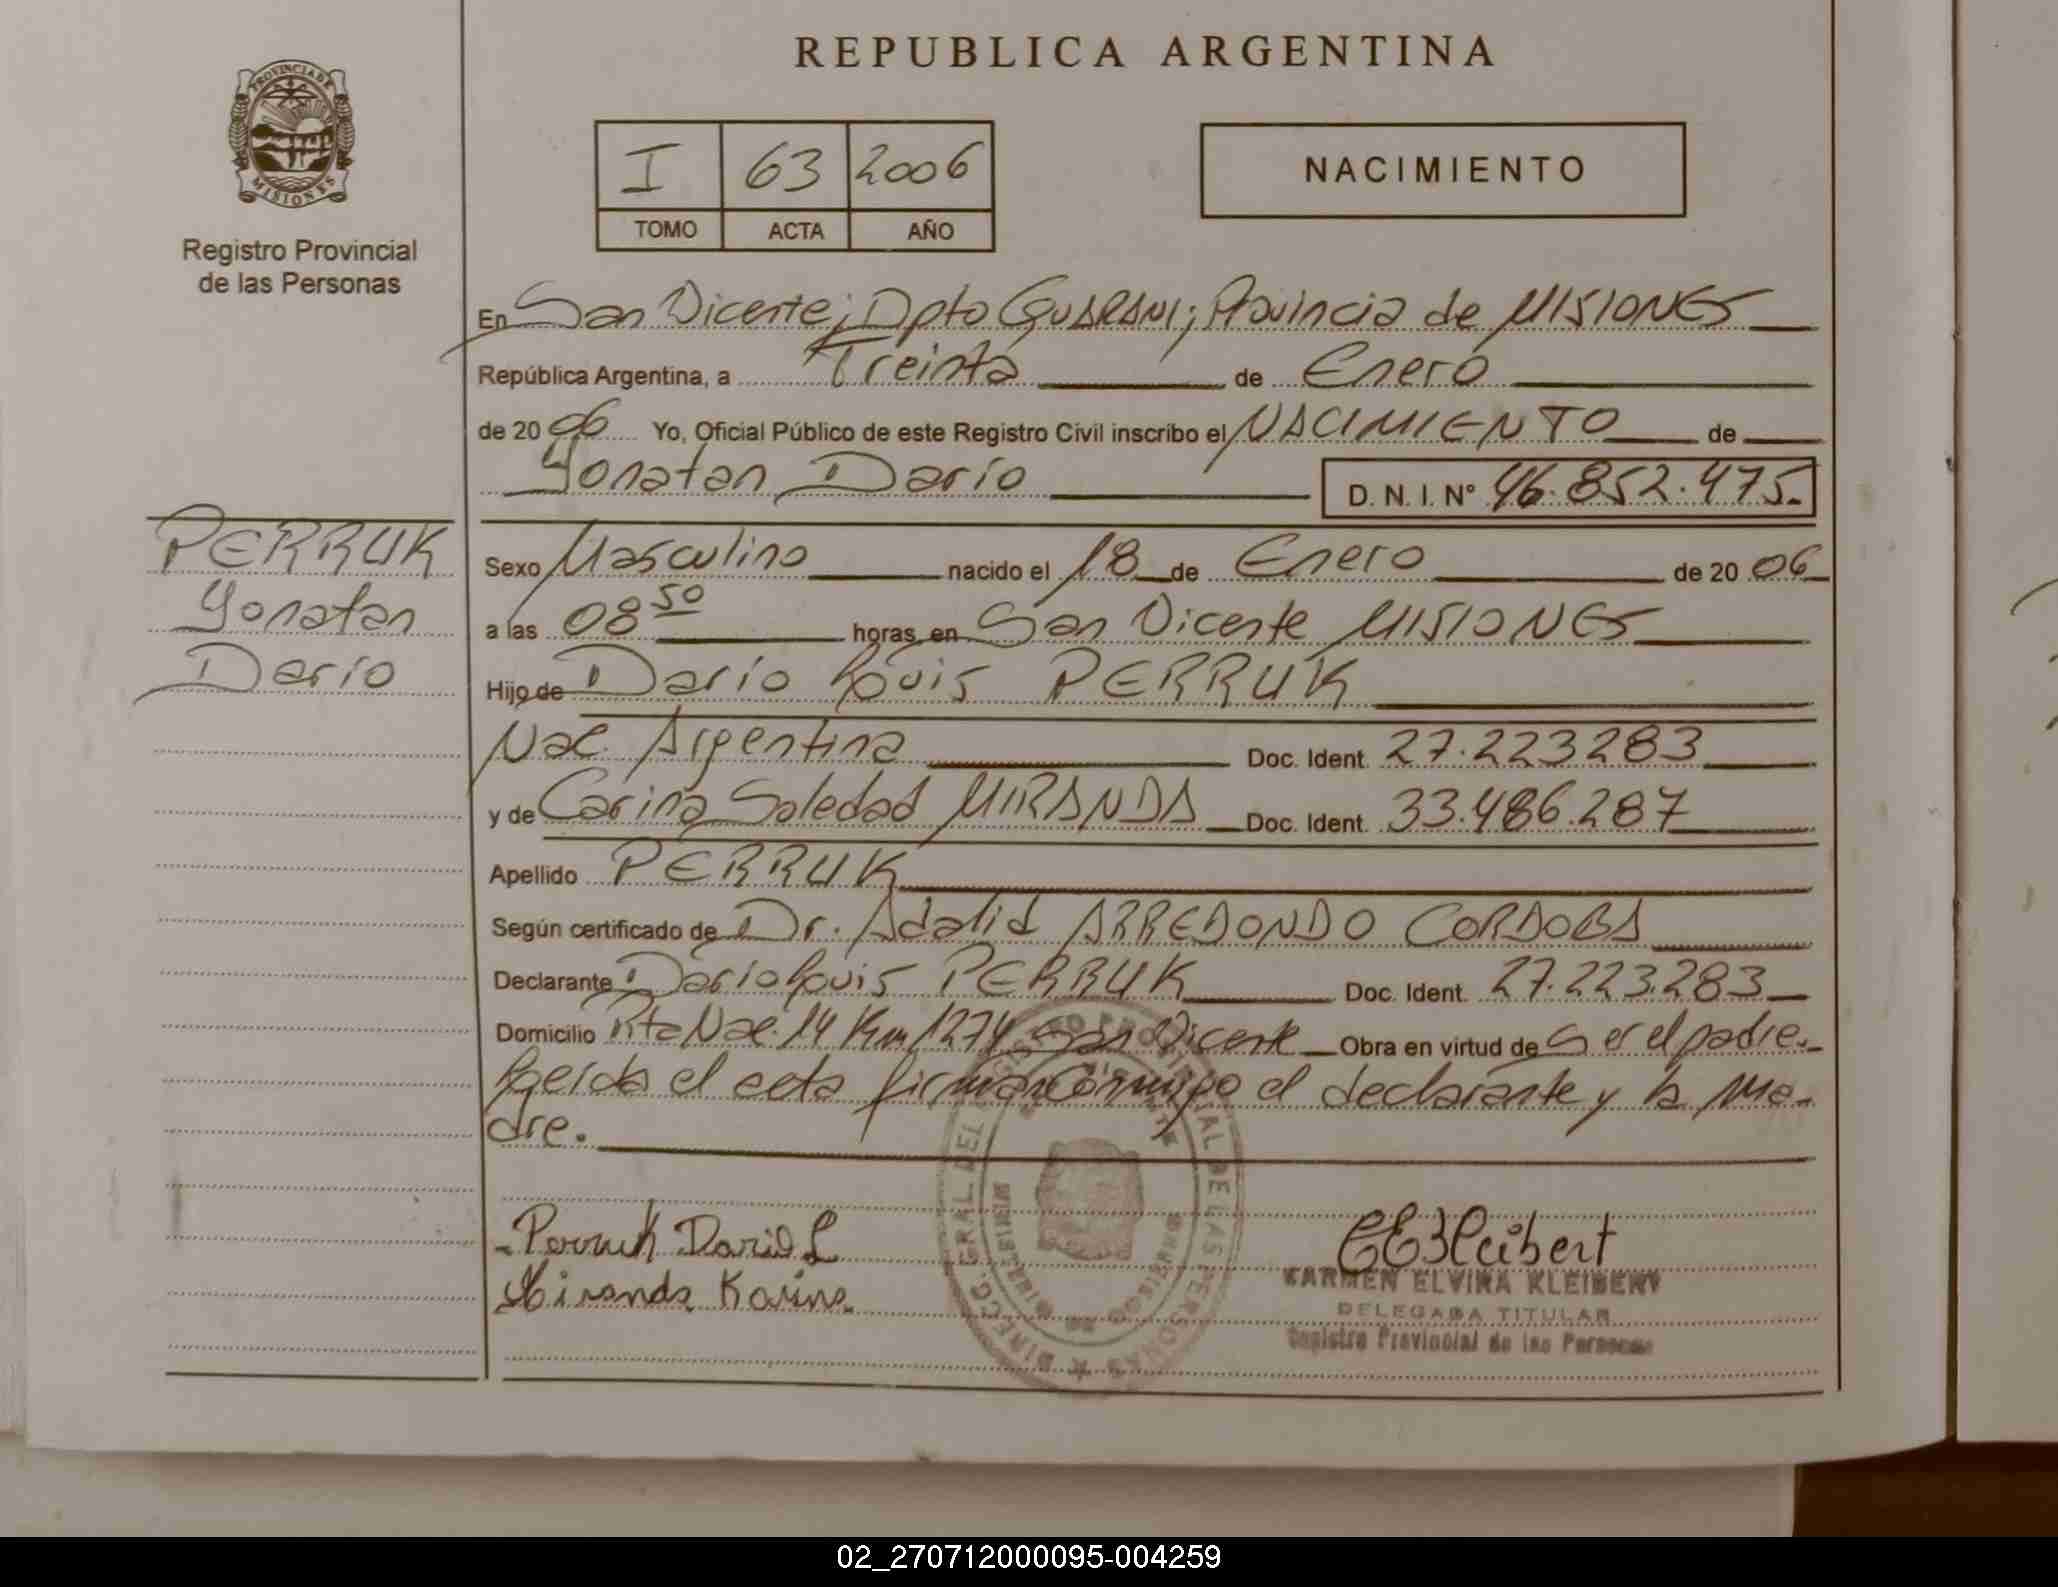 REPUBLICA ARGENTINA
PROVINCIA DE
MISIONES
Registro Provincial
de las Personas
I 63 2006
TOMO ACTA AÑO
NACIMIENTO
En San Vicente; Dpto GUARANI; Provincia de MISIONES
República Argentina, a Treinta de Enero
de 20 06 Yo, Oficial Público de este Registro Civil inscribo el NACIMIENTO de
Yonatan Darío D. N. I. N° 46.852.475.
PERRUK
Yonatan
Darío
Sexo Masculino nacido el 18 de Enero de 20 06
a las 08 50 horas, en San Vicente MISIONES
Hijo de Darío Louis PERRUK
Nac. Argentina Doc. Ident. 27.223283
y de Carina Soledad MIRANDA Doc. Ident. 33.486.287
Apellido PERRUK
Según certificado de Dr. Adalid ARREDONDO CORDOBA
Declarante Darío Louis PERRUK Doc. Ident. 27.223.283
Domicilio Rta Nac. 14 Km 1274 San Vicente Obra en virtud de Ser el padre.
Leida el acta firman conmigo el declarante y la Ma-
dre.
Perruk Dario L
Miranda Karina
CEKleibert
KARMEN ELVIRA KLEIBERT
DELEGADA TITULAR
Registro Provincial de las Personas
02_270712000095-004259